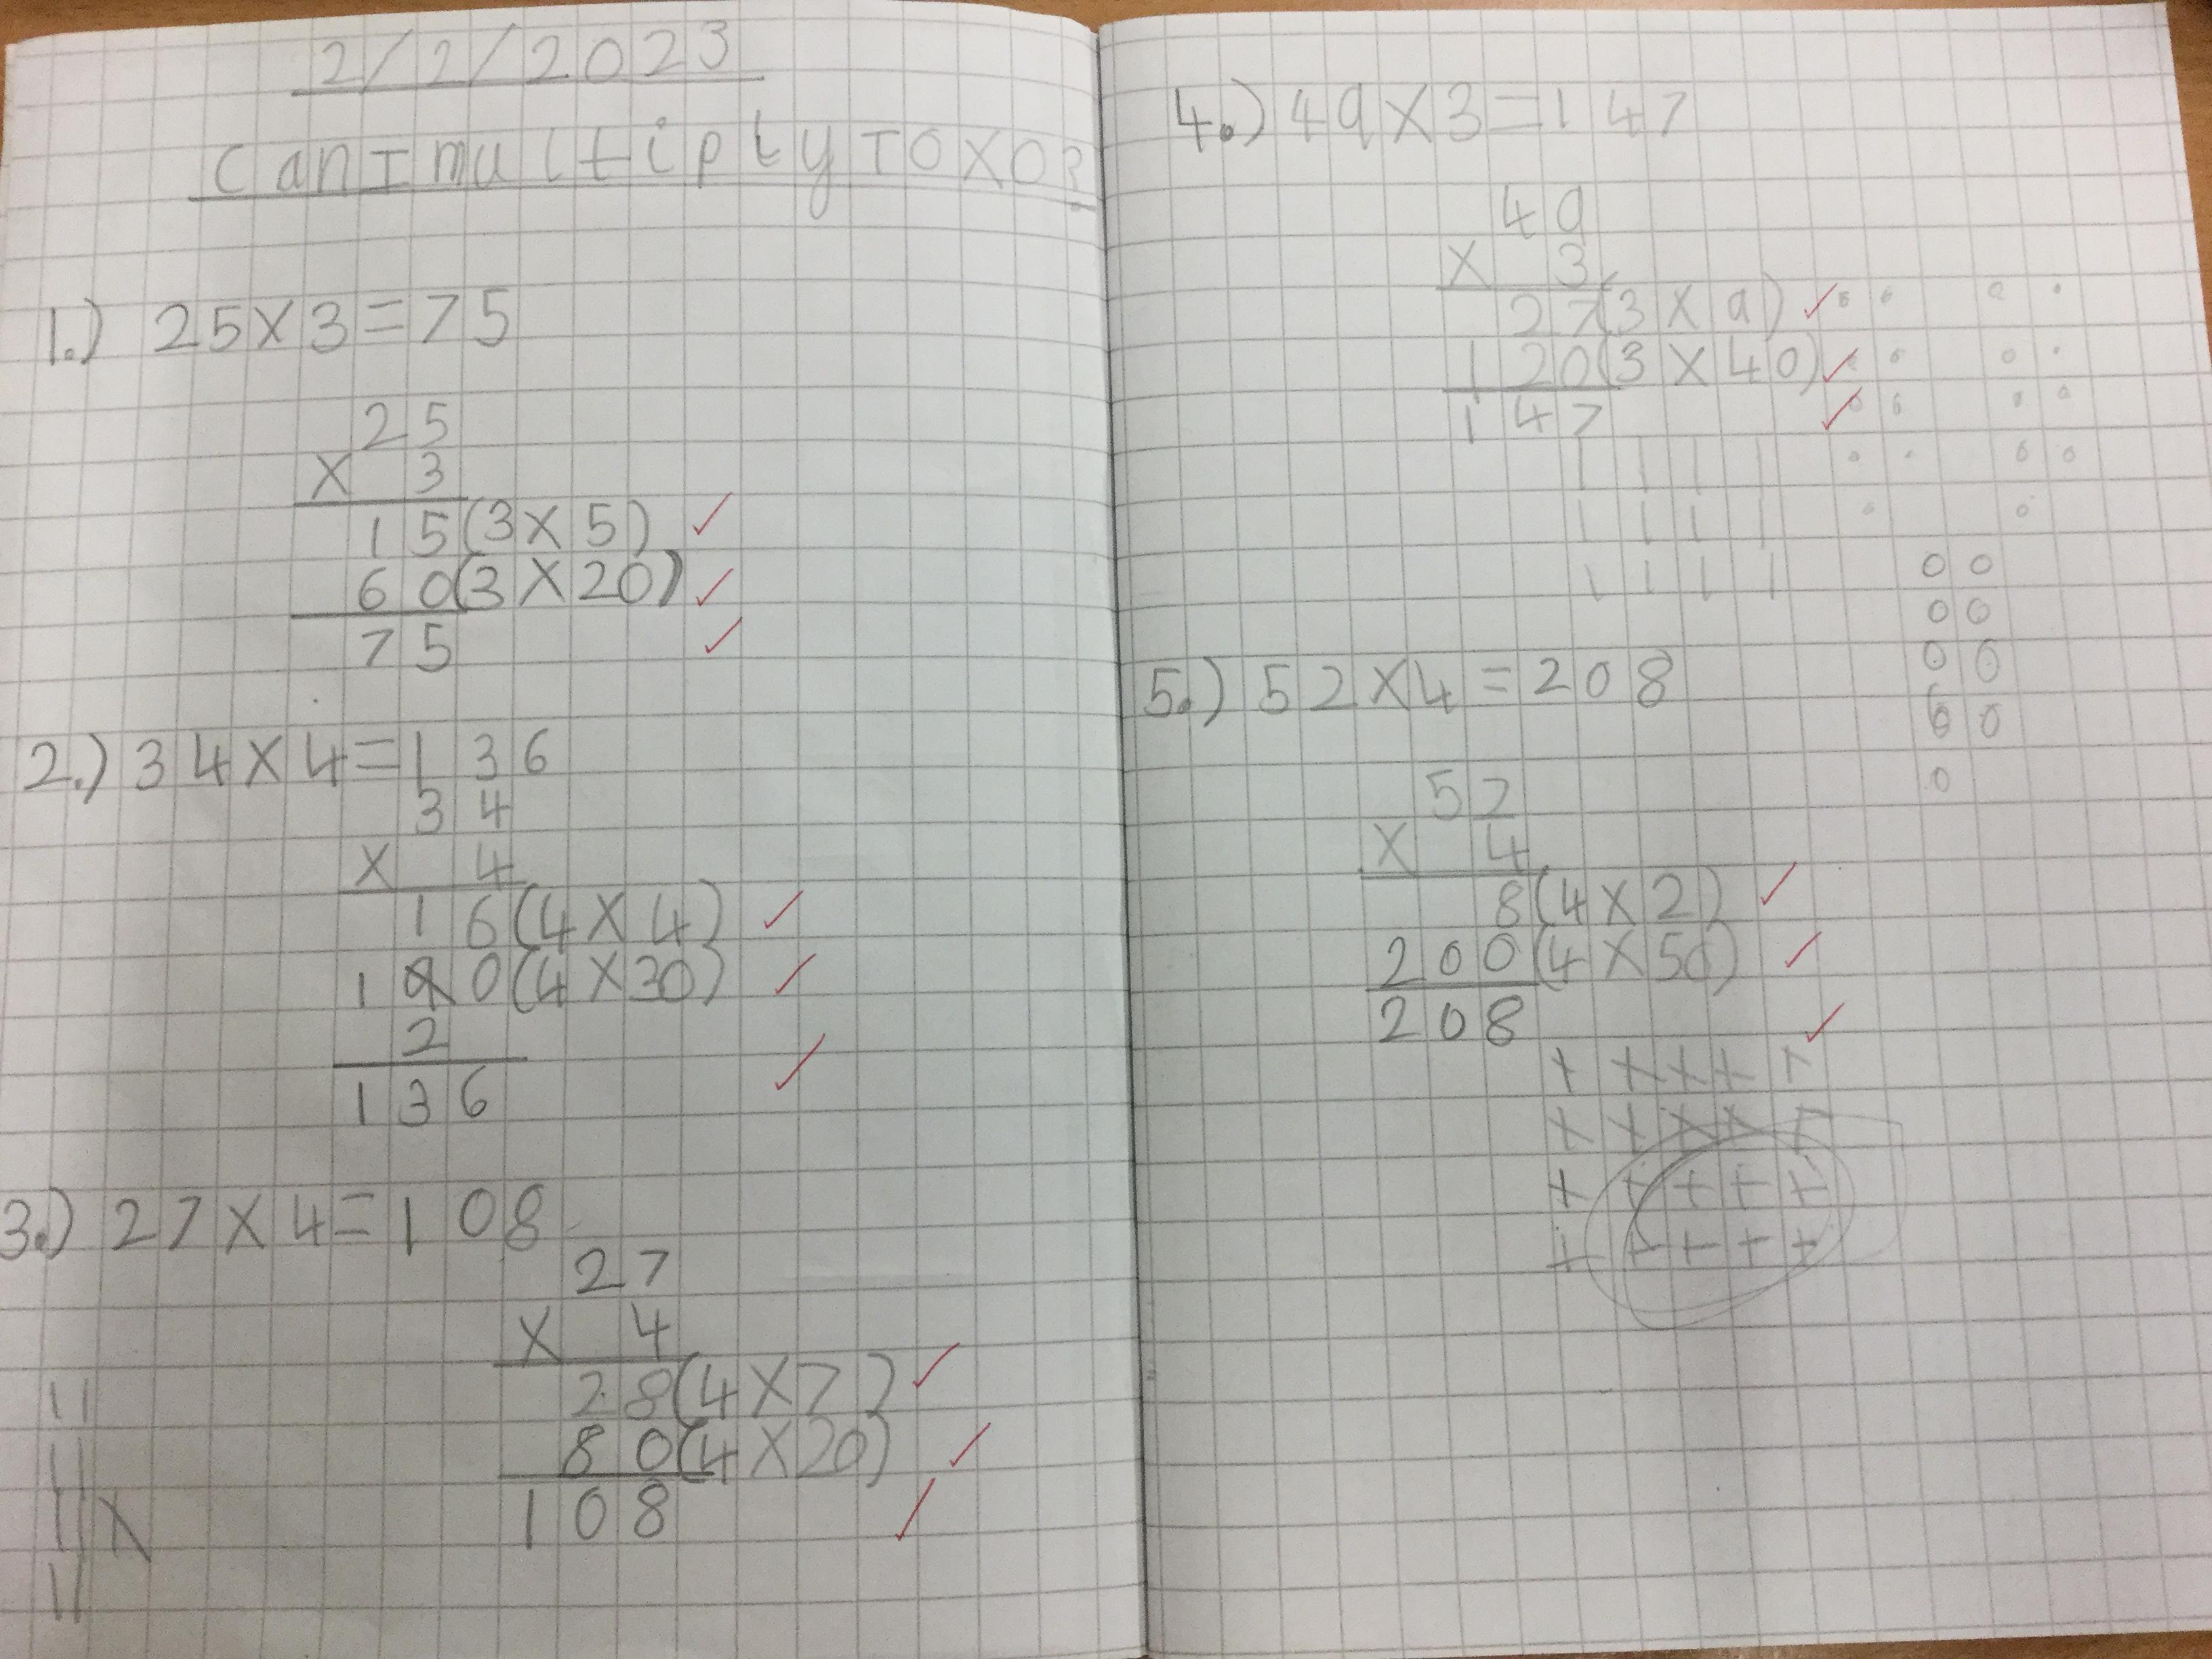 2/2/2023
Can I multiply TO X O?
1.) 25 X 3 = 75
25
X 3
15 (3 X 5)
60 (3 X 20)
75
2.) 34 X 4 = 136
34
X 4
16 (4 X 4)
1 0 (4 X 30)
2
136
3.) 27 X 4 = 108
27
X 4
28 (4 X 7)
80 (4 X 20)
108
4.) 49 X 3 = 147
49
X 3
27 (3 X 9)
120 (3 X 40)
147
5.) 52 X 4 = 208
52
X 4
8 (4 X 2)
200 (4 X 50)
208